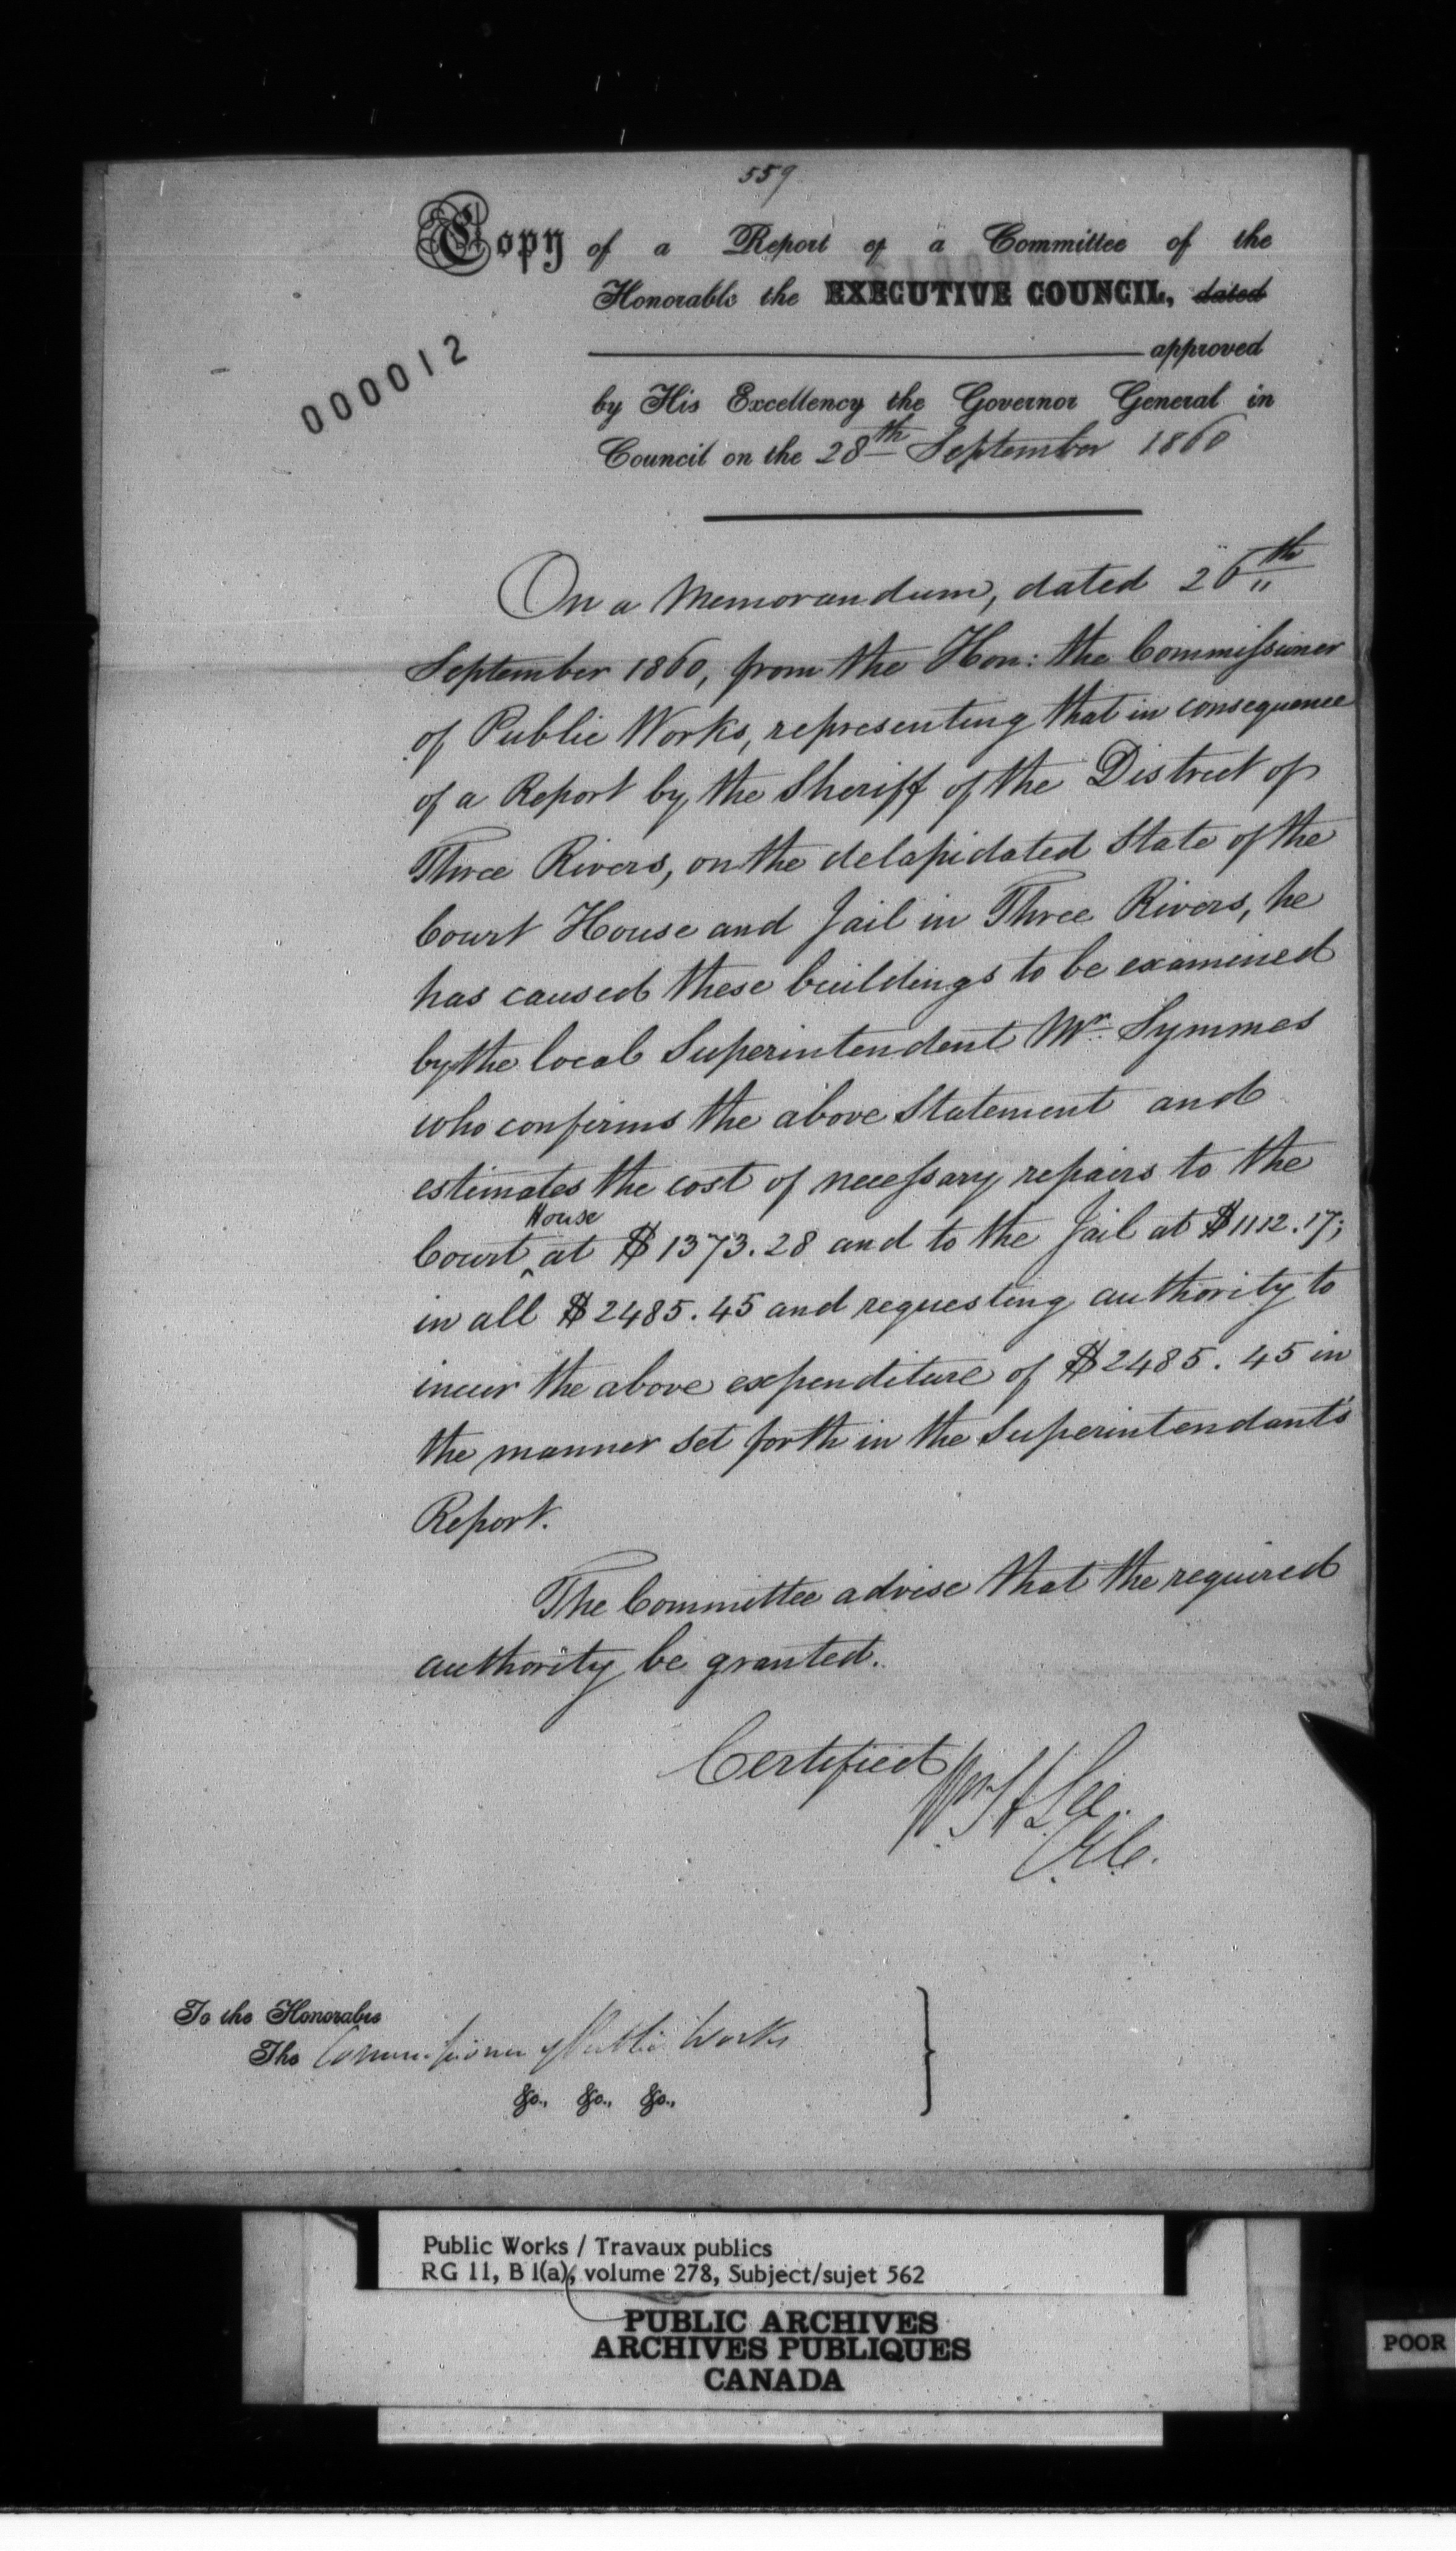 559
Copy of a Report of a Committee of the
Honorable the EXECUTIVE COUNCIL, dated
approved
by His Excellency the Governor General in
Council on the 28th September 1860
000012
On a Memorandum, dated 26th
September 1860, from the Hon: the Commissioner
of Public Works, representing that in consequence
of a Report by the Sheriff of the District of
Three Rivers, on the delapidated State of the
Court House and Jail in Three Rivers, he
has caused these buildings to be examined
by the local Superintendent Mr. Symmes
who confirms the above Statement and
estimates the cost of necessary repairs to the
Court House at $1373.28 and to the Jail at $1112.17;
in all $2485.45 and requesting authority to
incur the above expenditure of $2485.45 in
the manner set forth in the Superintendant's
Report.
The Committee advise that the required
authority be granted.
Certified
Wm H Lee
C.E.C.
To the Honorable
The Commissioner of Public Works
&c., &c., &c.,
Public Works / Travaux publics
RG 11, B 1(a), volume 278, Subject/sujet 562
PUBLIC ARCHIVES
ARCHIVES PUBLIQUES
CANADA
POOR